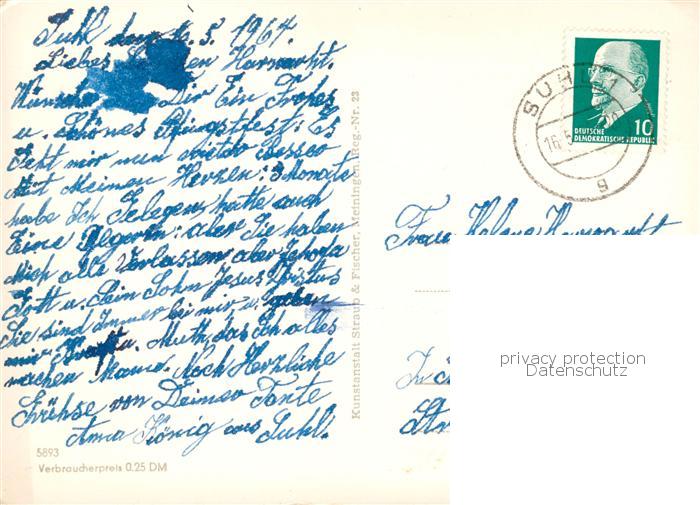 Suhl den 16. 5. 1964.
Liebes Harmarkt.
Wünsche Dir Ein Frohes
u. Schönes Pfingstfest: Es
Geht mir nun wieder Besser
Mit Meinen Herzen: 3 Monate
habe Ich Gelegen, hatte auch
Eine : aber Sie haben
Mich alle Verlassen aber Jehova
Gott u. Sein Sohn Jesus Christus
Sie sind Immer bei mir, u. geben
mir Kraft u. Muth, das Ich alles
machen kann. Noch Herzliche
Grühse von Deiner Tante
Anna König aus Suhl.
5893
Verbraucherpreis 0.25 DM
Kunstanstalt Straub & Fischer, Meiningen, Reg.-Nr. 23
SUHL 1
16.5
g
10
DEUTSCHE
DEMOKRATISCHE REPUBLIK
Frau Helene
privacy protection
Datenschutz